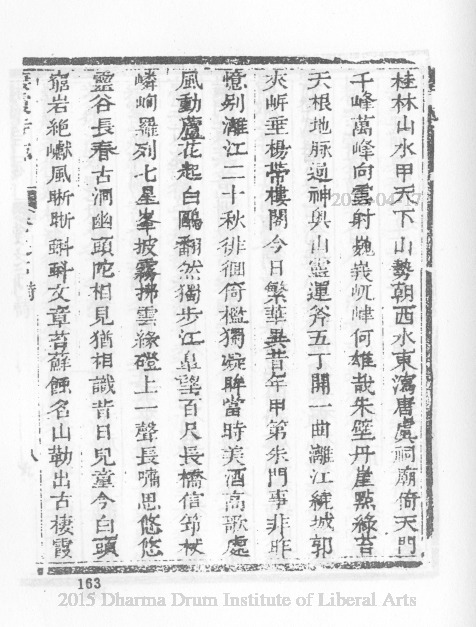 桂林山水甲天下山勢朝西水東瀉唐虞祠廟倚天門
千峰萬峰向雲射巍峩屼嵂何雄哉朱壁丹崖點綠苔
天根地脉逈神輿山靈運斧五丁開一曲灕江繞城郭
夾岍垂楊帶樓閣今日繁華異昔年甲第朱門事非昨
憶別灕江二十秋徘徊倚檻獨凝眸當時美酒高歌處
風動蘆花起白鷗翻然獨步江臯望百尺長橋信筇杖
嶙峋羅列七星峯披霧拂雲緣磴上一聲長嘯思悠悠
靈谷長春古洞幽頭陀相見猶相識昔日兒童今白頭
窮岩絶巘風晰晰蝌蚪文章苔蘚蝕名山勒出古棲霞
163
2015 Dharma Drum Institute of Liberal Arts